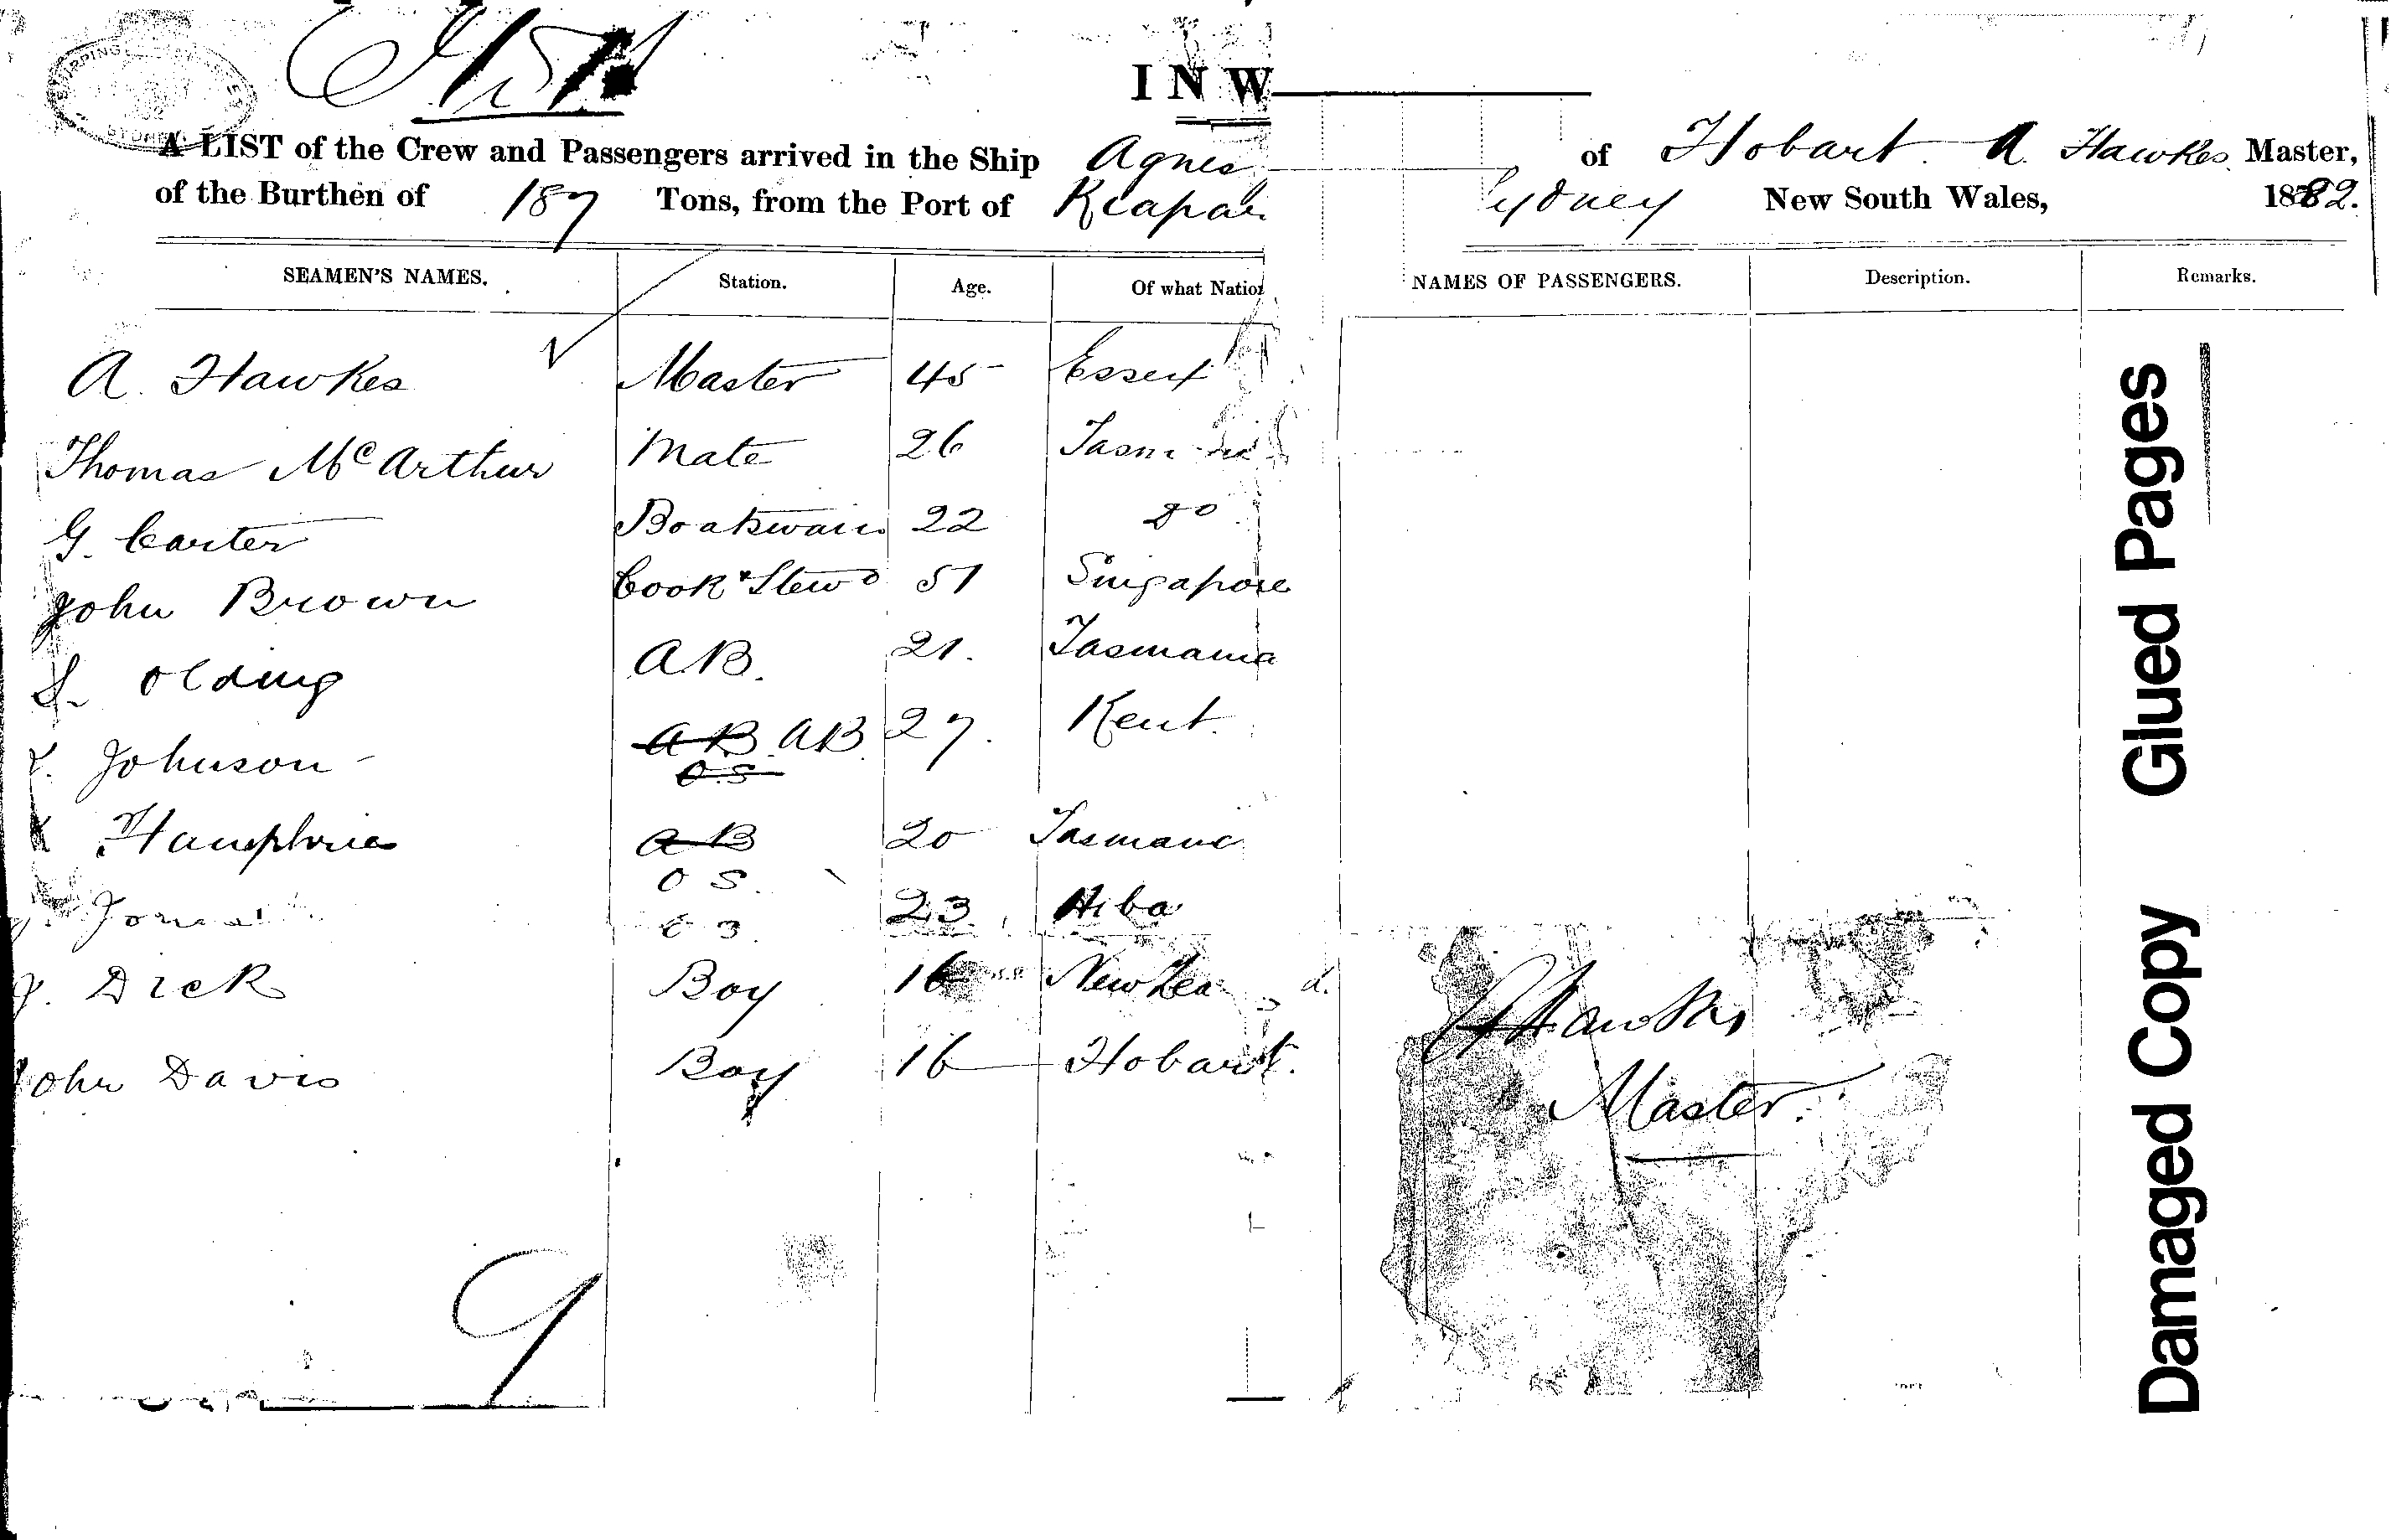 INW
A LIST of the Crew and Passengers arrived in the Ship Agnes of Hobart A. Hawkes Master,
of the Burthen of 187 Tons, from the Port of Sydney New South Wales, 1882.
SEAMEN'S NAMES. Station. Age. Of what Nation NAMES OF PASSENGERS. Description. Remarks.
A. Hawkes Master 45 Essex
Thomas McArthur Mate 26
G. Carter Boatswain 22 Do
John Brown Cook & Stewd 51 Singapore
Olding A.B. 21. Tasmania
Johnson AB AB 27. Kent.
O.S
Humphries AB 20
O S.
Jones 23
J. Dick Boy 16
John Davis Boy 16 Hobart.
A Hawkes
Master.
9
Damaged Copy Glued Pages